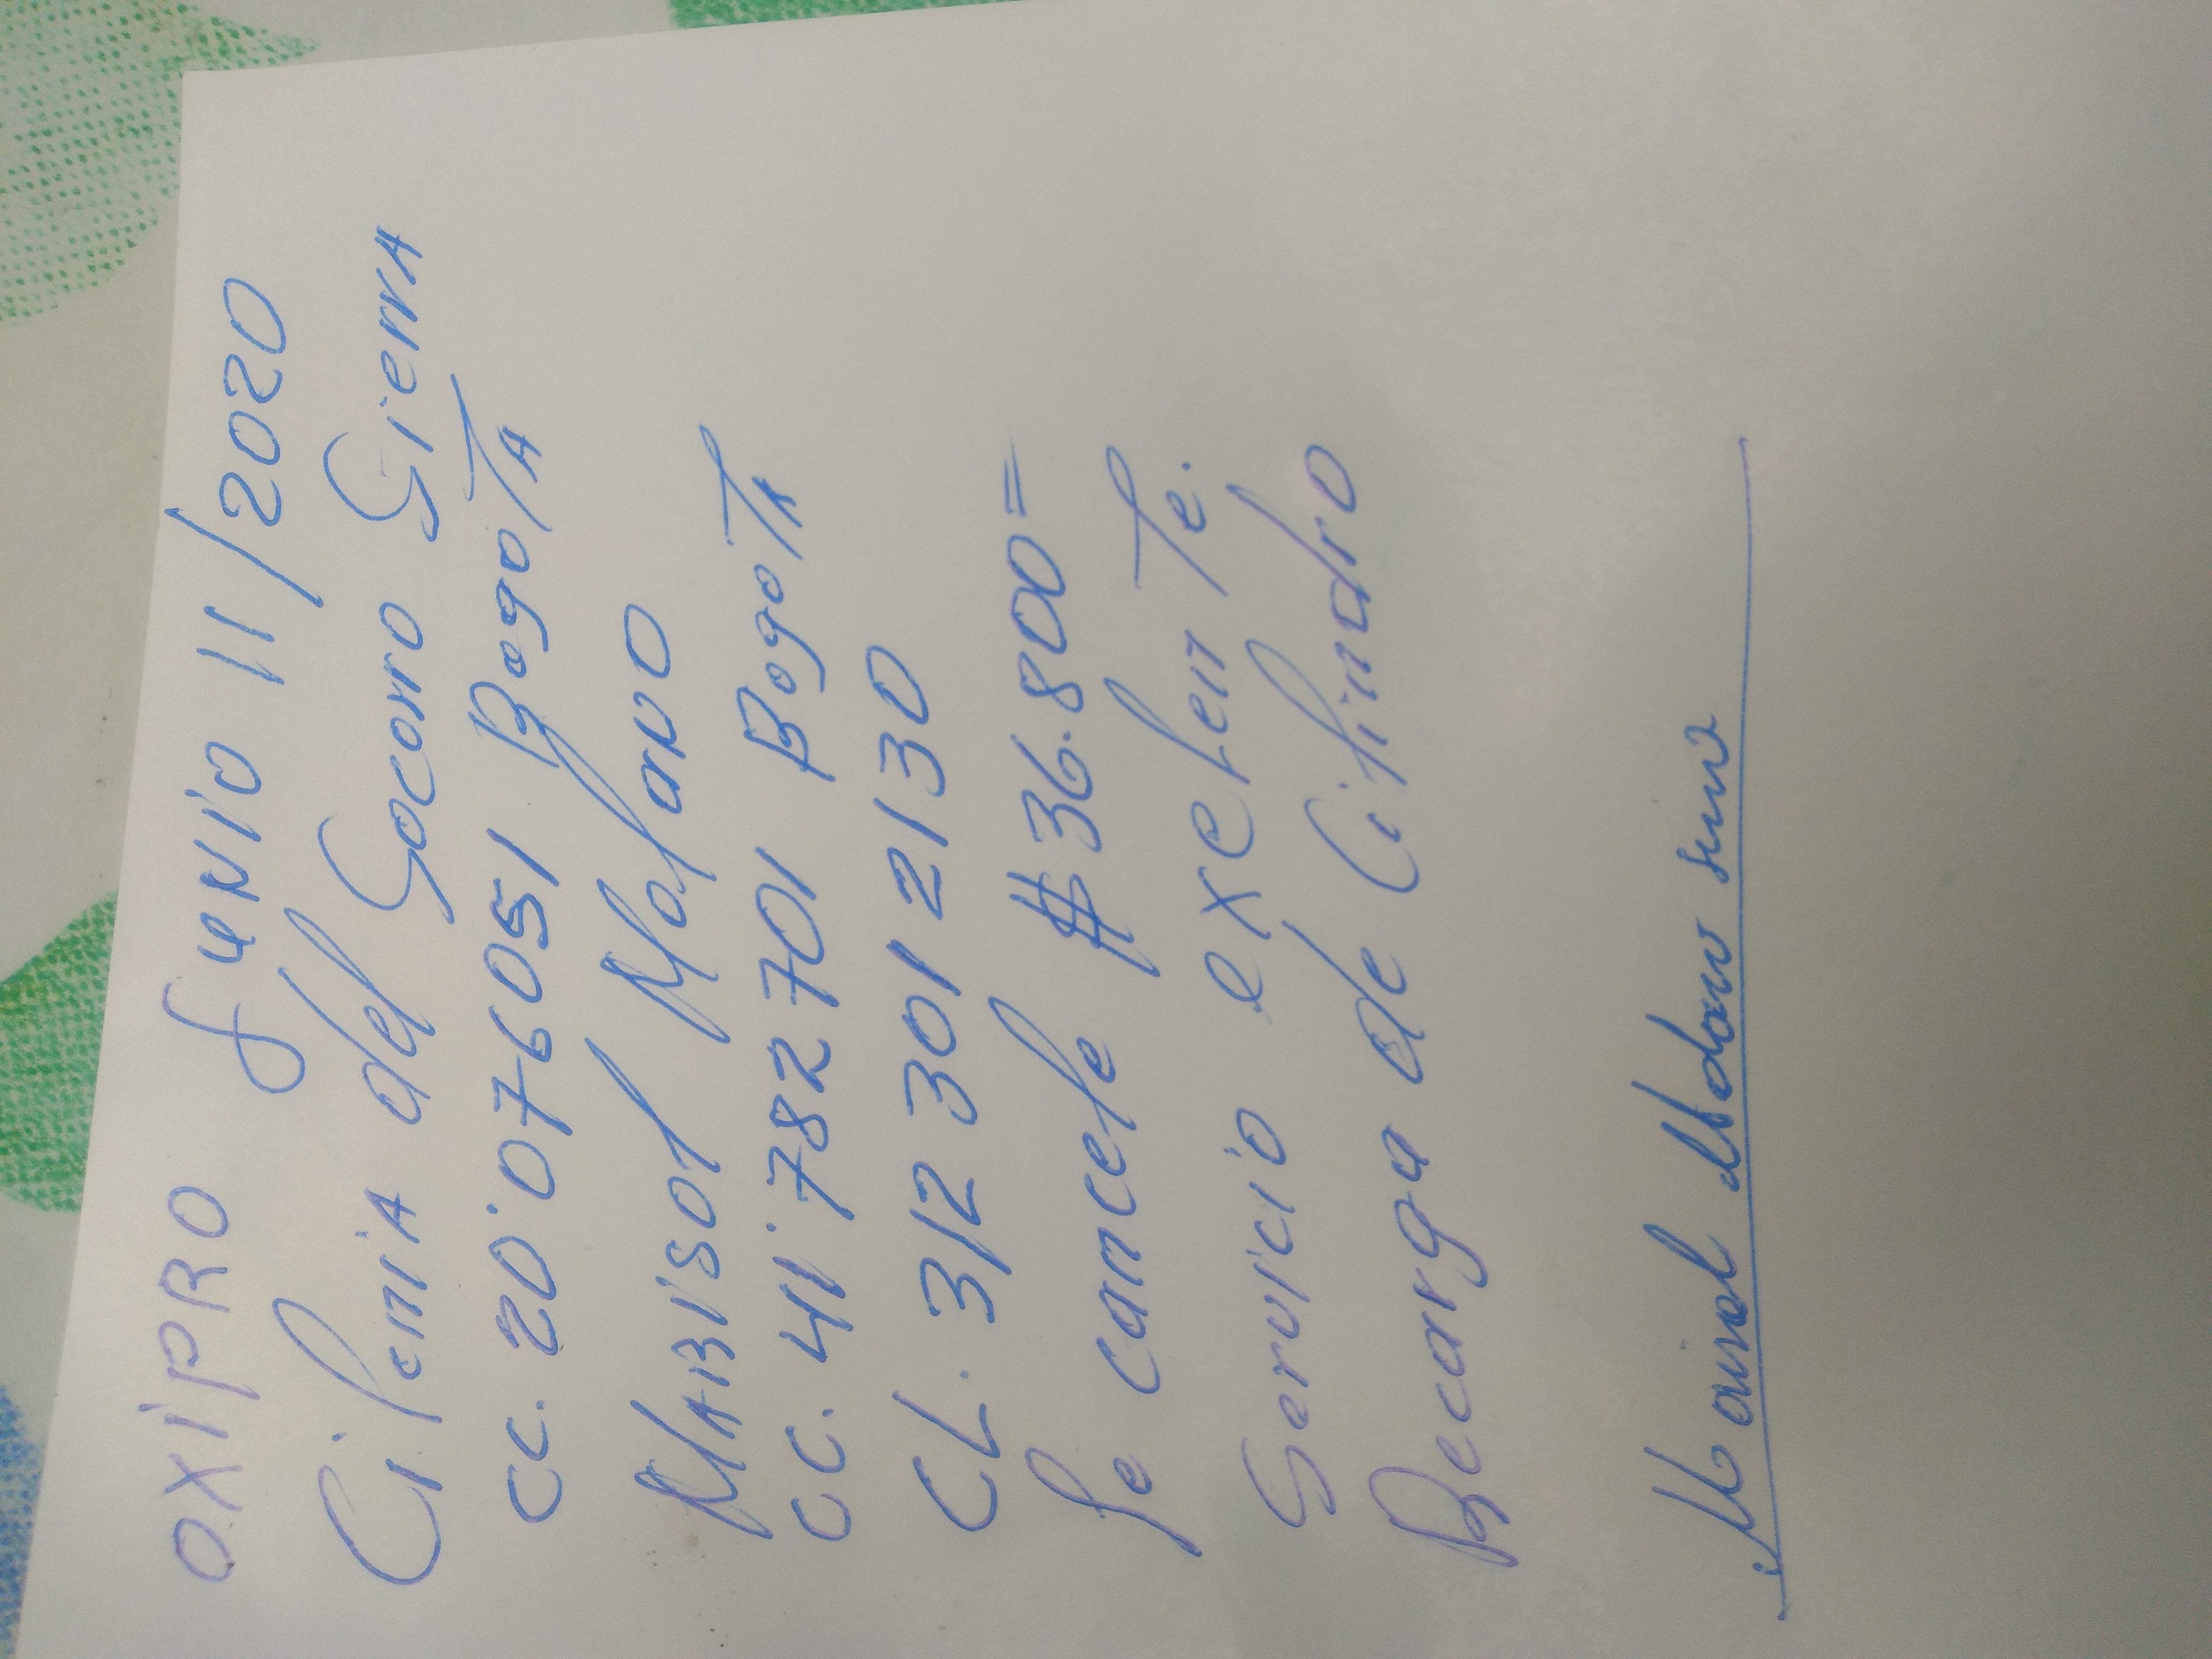 OXIPRO Junio 11/2020
Cilenia del Socorro Sierra
CC. 20'076051 Bogotá
MARISOl Molano
CC. 41'782701 Bogotá
CL. 312 301 2130
Se cancelo # 36.800=
Servicio exelente.
Recarga de Cilindro
Marisol